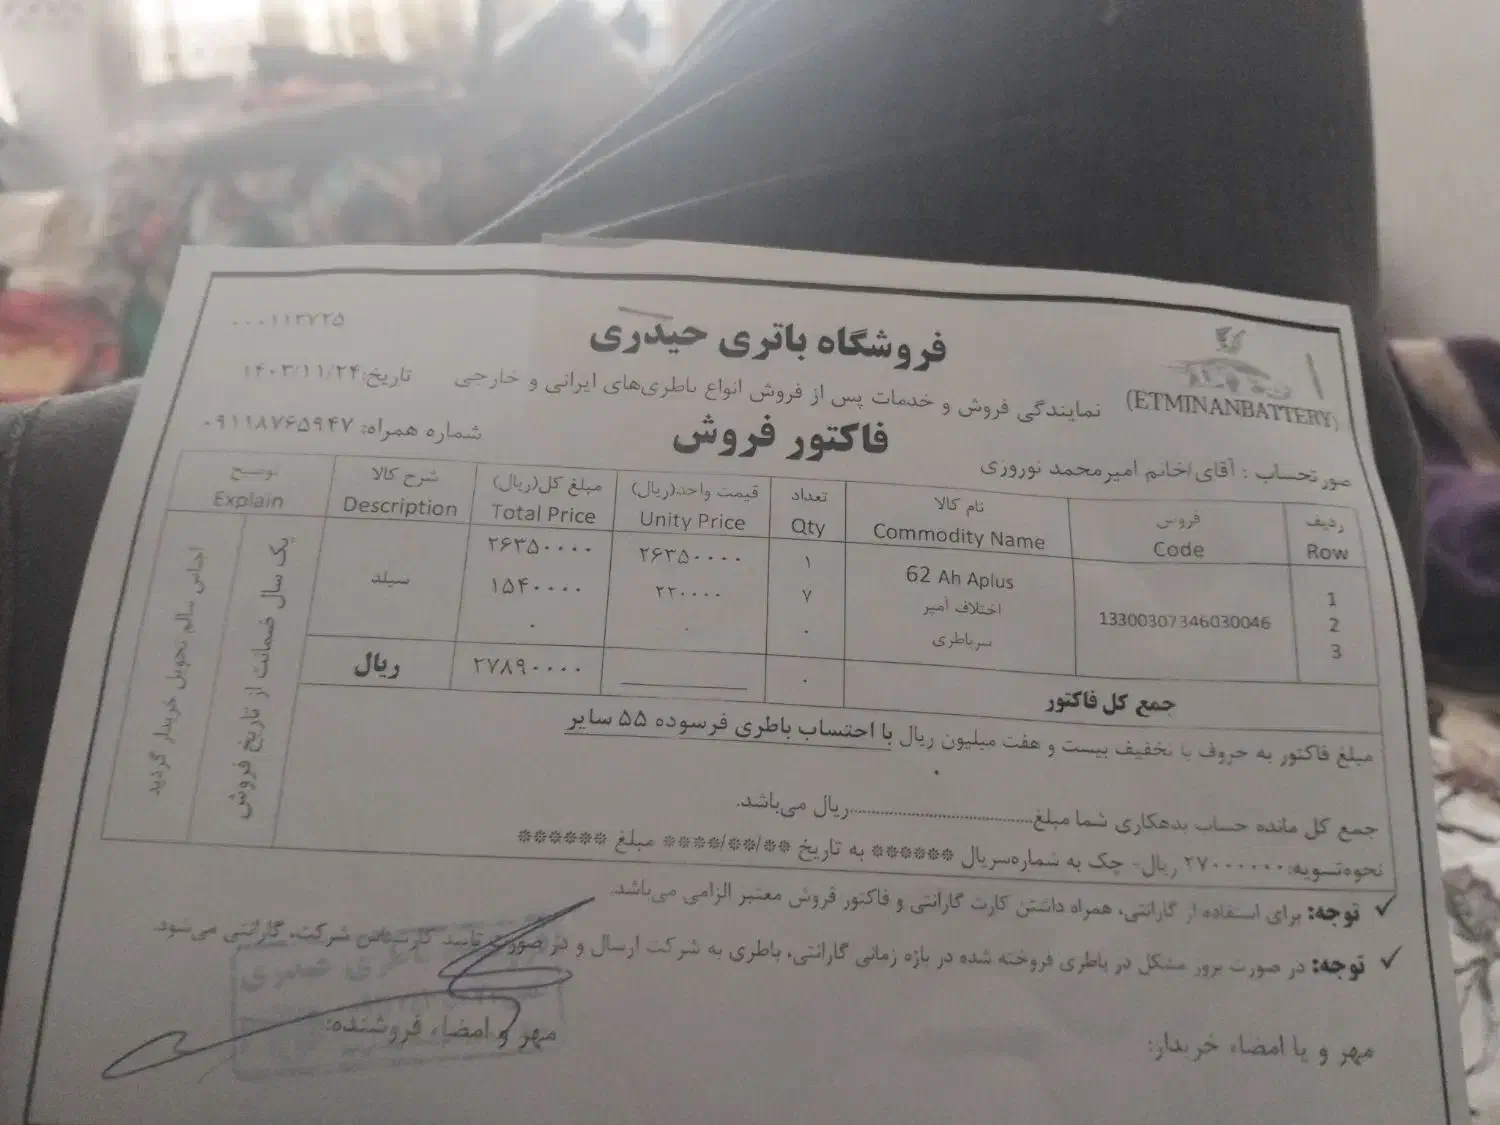 فروشگاه باتری حیدری
۰۰۰۱۱۳۷۲۵
(ETMINANBATTERY)
نمایندگی فروش و خدمات پس از فروش انواع باطری‌های ایرانی و خارجی
تاریخ:۱۴۰۳/۱۱/۲۴
فاکتور فروش
شماره همراه: ۰۹۱۱۸۷۶۵۹۴۷
صورتحساب : آقای/خانم امیرمحمد نوروزی
ردیف فروش نام کالا تعداد قیمت واحد(ریال) مبلغ کل(ریال) شرح کالا توضیح
Row Code Commodity Name Qty Unity Price Total Price Description Explain
1 13300307346030046 62 Ah Aplus ۱ ۲۶۳۵۰۰۰۰ ۲۶۳۵۰۰۰۰ سیلد
2 اختلاف آمپر ۷ ۲۲۰۰۰۰ ۱۵۴۰۰۰۰
3 سرباطری ۰ ۰ ۰
جمع کل فاکتور ۰ ۲۷۸۹۰۰۰۰ ریال
یک سال ضمانت از تاریخ فروش
اجناس سالم تحویل خریدار گردید
مبلغ فاکتور به حروف با تخفیف بیست و هفت میلیون ریال با احتساب باطری فرسوده ۵۵ سایر
جمع کل مانده حساب بدهکاری شما مبلغ........................................ریال می‌باشد.
نحوه‌تسویه:۲۷۰۰۰۰۰۰ ریال- چک به شماره‌سریال ****** به تاریخ **/**/**** مبلغ ******
✓ توجه: برای استفاده از گارانتی، همراه داشتن کارت گارانتی و فاکتور فروش معتبر الزامی می‌باشد.
✓ توجه: در صورت بروز مشکل در باطری فروخته شده در بازه زمانی گارانتی، باطری به شرکت ارسال و در صورت تایید کارشناس شرکت، گارانتی می‌شود.
مهر و یا امضاء خریدار:
مهر و امضاء فروشنده: